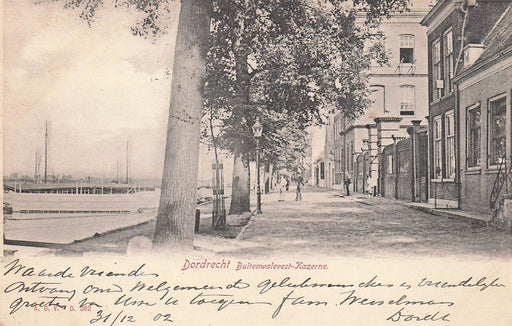 Dordrecht Buitenwalevest-Kazerne.
Waarde Vrienden
Ontvang onze Welgemeende gelukwenschen en vriendelijke
groeten van Uwe U toegen. fam. Weiselman
N. G. V. D. 262
31/12 02 Dordt